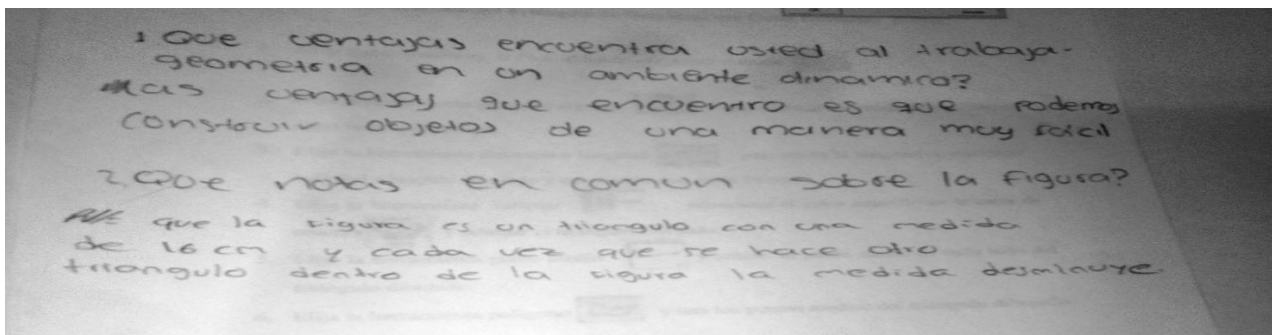 1 Que ventajas encuentra usted al trabaja-
geometria en un ambiente dinamico?
las ventajas que encuentro es que podemos
construir objetos de una manera muy facil
2. Que notas en comun sobre la figura?
que la figura es un triangulo con una medida
de 16 cm y cada vez que se hace otro
triangulo dentro de la figura la medida desminuye